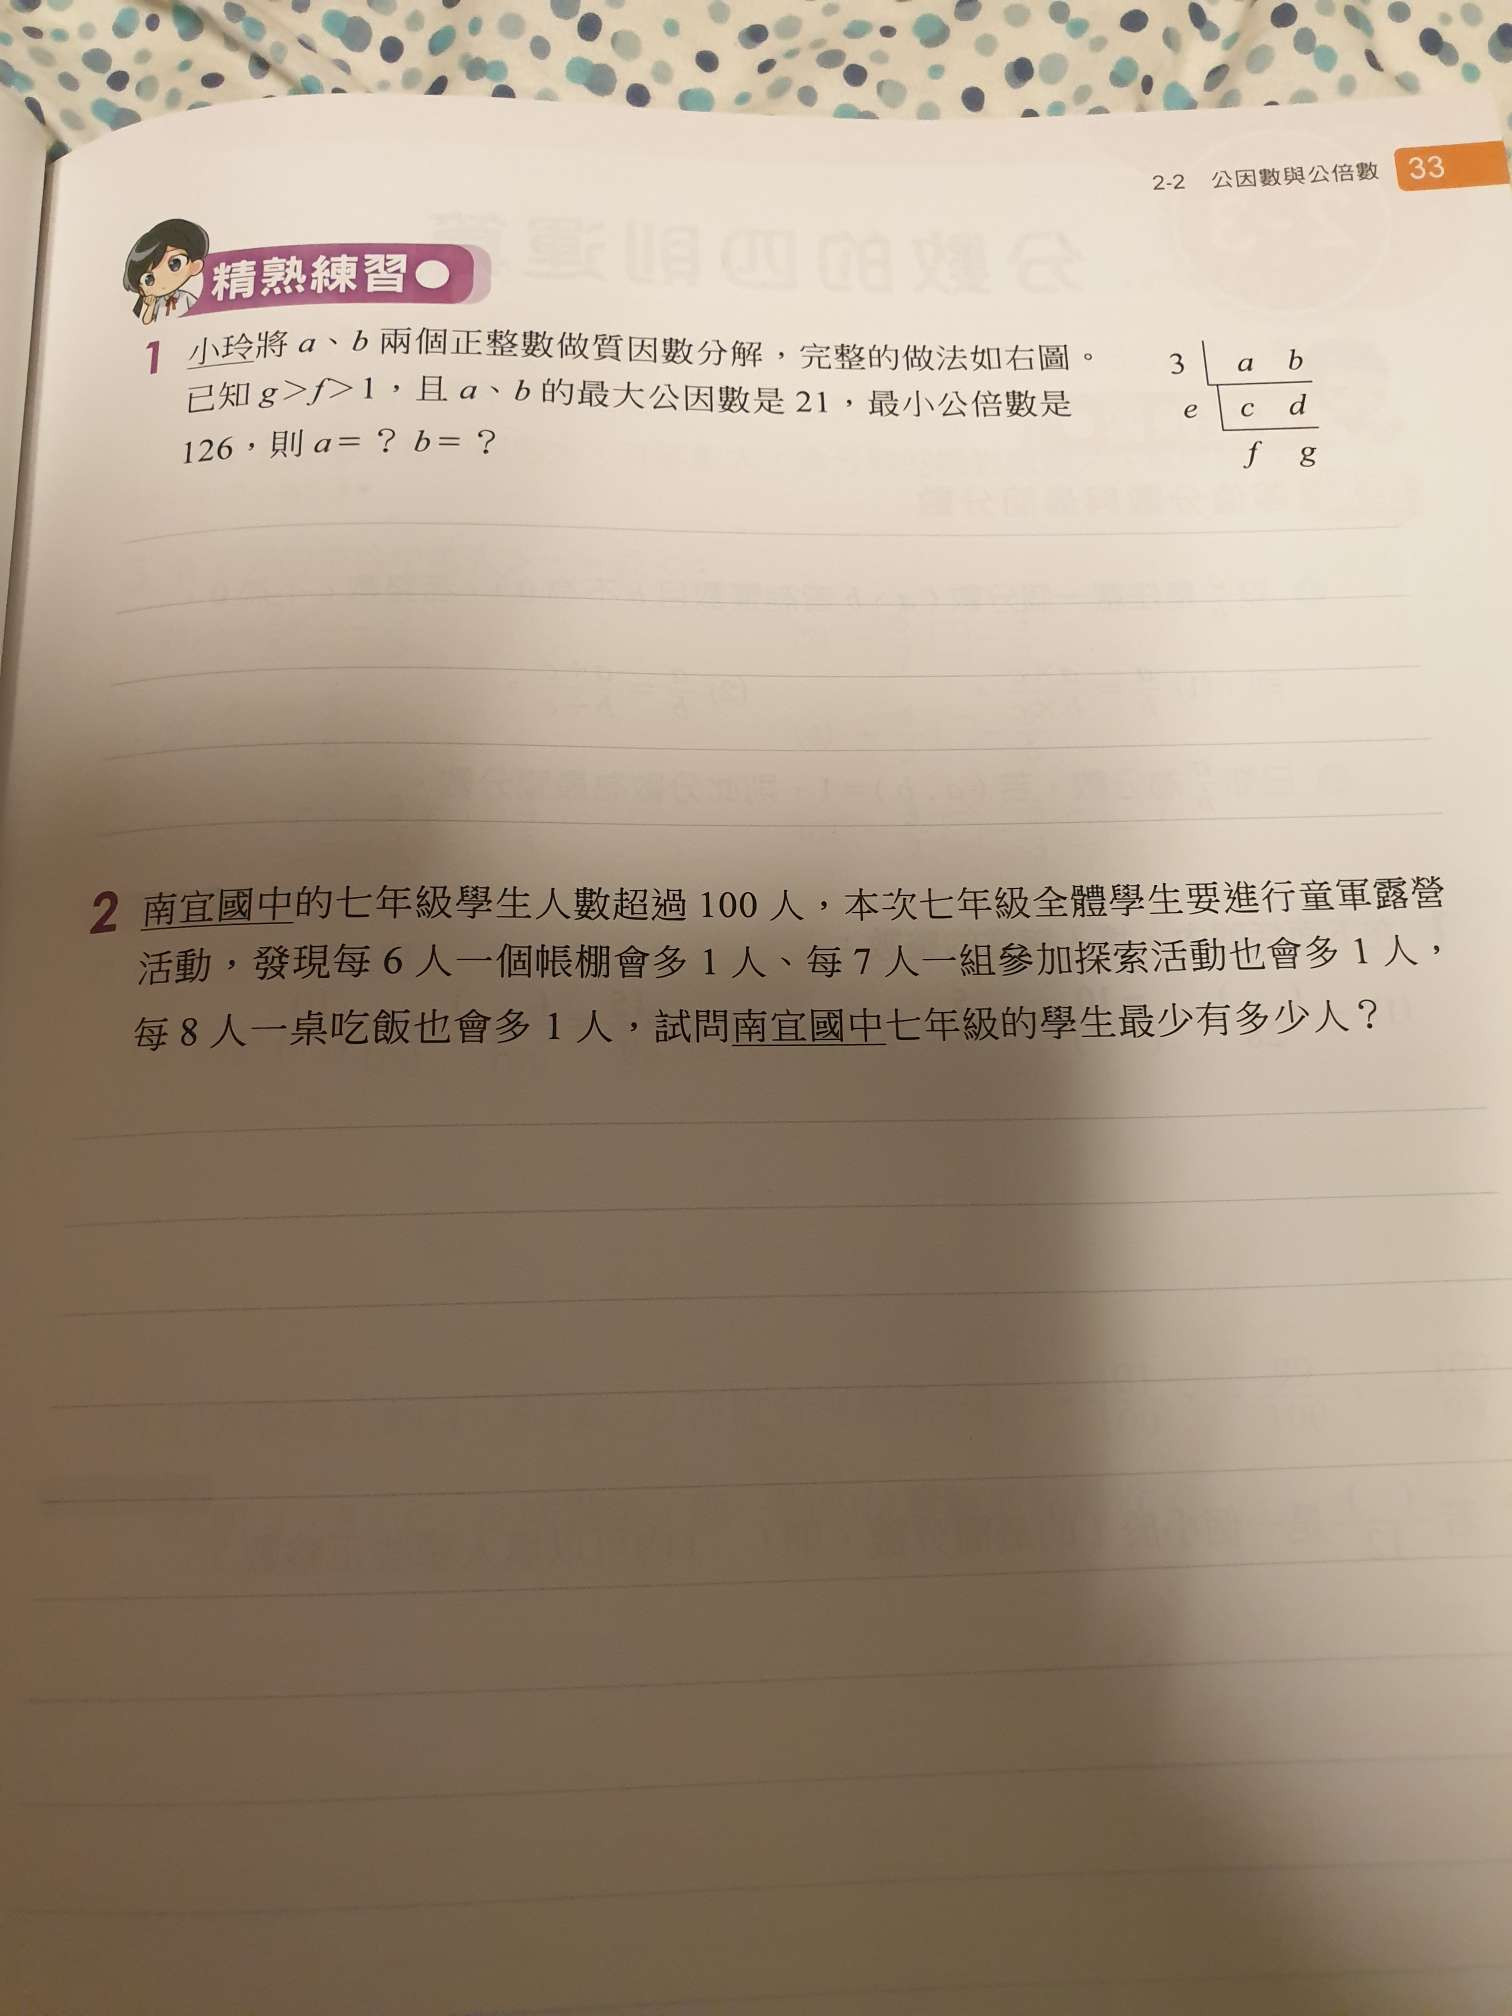 2-2 公因數與公倍數 33
精熟練習
1 小玲將 a、b 兩個正整數做質因數分解，完整的做法如右圖。
已知 g>f>1，且 a、b 的最大公因數是 21，最小公倍數是
126，則 a=？b=？
3 a b
e c d
f g
2 南宜國中的七年級學生人數超過 100 人，本次七年級全體學生要進行童軍露營
活動，發現每 6 人一個帳棚會多 1 人、每 7 人一組參加探索活動也會多 1 人，
每 8 人一桌吃飯也會多 1 人，試問南宜國中七年級的學生最少有多少人？